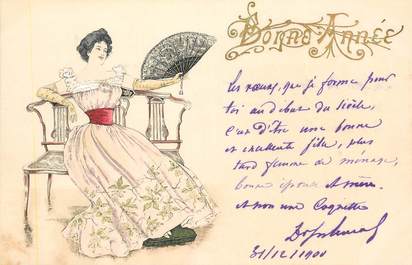 Bonne Année
Les vœux, que je forme pour
toi au début du siècle,
C'est d'être une bonne
et excellente fille, plus
tard femme de ménage,
bonne épouse et mère
et non une Coquette
31/12/1900